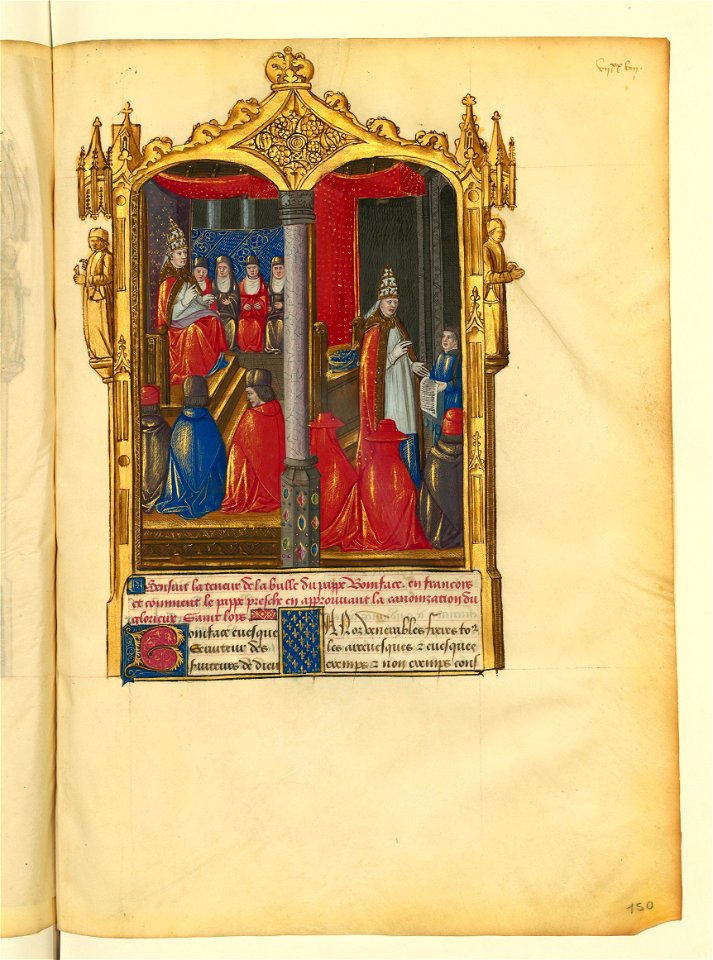 Sensuit la teneur de la bulle du pappe Boniface. en francoys
et comment le pappe presche en approuvant la canonization du
glorieux Saint loys
Boniface evesque
Serviteur des
serviteurs de dieu
A Noz venerables freres to9
les arcevesques 2 evesques
exemps 2 non exemps cons
150